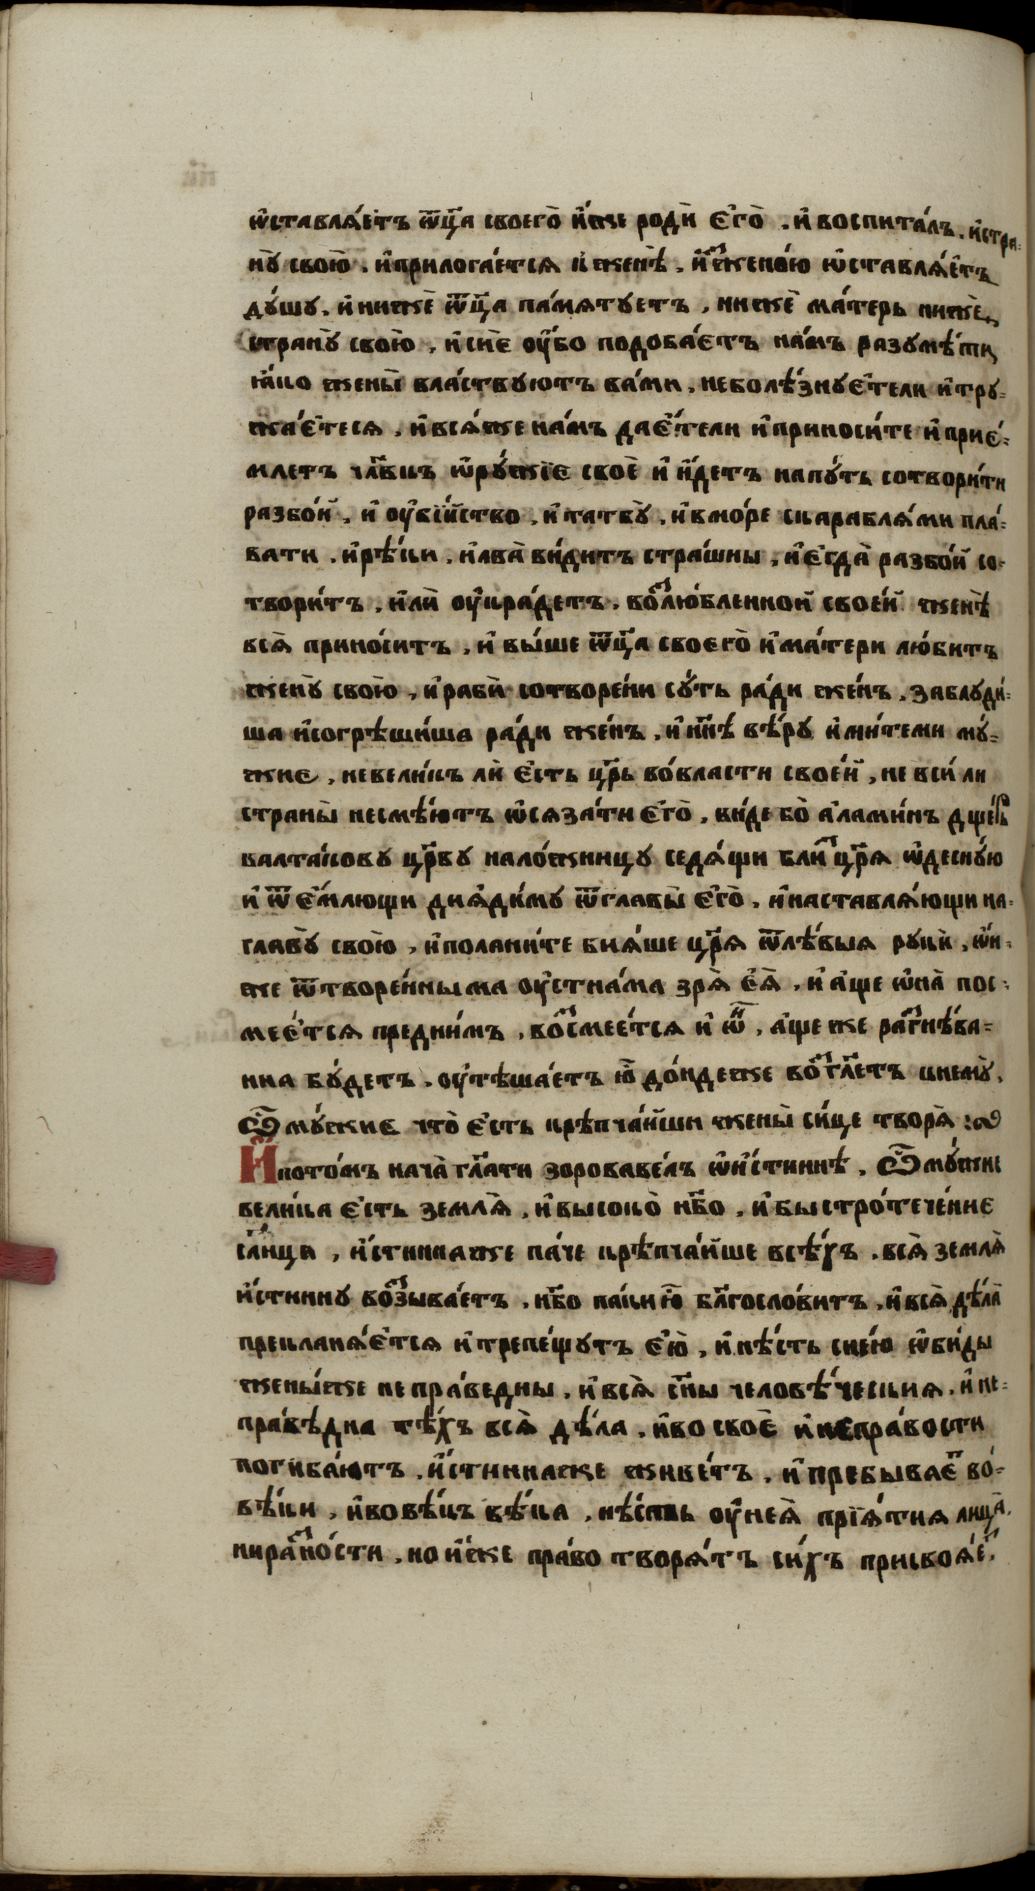 ѡ҆ставлѧ́етъ ѿц҃а своего̀ и҆́же родѝ є҆го̀ . и҆ воспита́лъ . и҆стра-
нꙋ̀ свою̀ . и҆прилога́етсѧ к женѣ̀ . и҆с̾жено́ю ѡ҆ставлѧ́етъ
дꙋ́шꙋ . и҆нижѐ ѿц҃а па́мѧтꙋетъ , нижѐ ма́терь нижѐ
странꙋ̀ свою̀ , и҆сицѐ ᲂу҆̀бо подоба́етъ на́мъ разꙋмѣ́ти
ꙗ҆́ко жены̀ вла́ствꙋютъ ва́ми , неболѣ́знꙋетели и҆трꙋ-
жа́етесѧ , и҆всѧ́же на́мъ дає́тели и҆приноси́те и҆прие́-
млетъ чл҃вкъ ѡ҆рꙋ́жїе своѐ и҆ и҆́детъ напꙋ́ть сотвори́ти
разбо́й , и҆ ᲂу҆бі́йство , и҆татвꙋ̀ , и҆вмо́ре скараблѧ́ми пла́-
вати . и҆рѣ́ки . и҆лва̀ ви́дитъ стра́шны , и҆є҆гда̀ разбо́й со-
твори́тъ , и҆лѝ ᲂу҆кра́детъ , воз̾лю́бленной свое́й женѣ̀
всѧ̀ прино́ситъ , и҆ вы́ше ѿц҃а своего̀ и҆ма́тери лю́битъ
женꙋ̀ свою̀ , и҆рабѝ сотворе́ни сꙋ́ть ра́ди же́нъ . заблꙋди́-
ша и҆согрѣши́ша ра́ди же́нъ , и҆нн҃ѣ вѣ́рꙋ и҆ми́теми мꙋ́-
жие , невели́къ лѝ є҆́сть цр҃ь во́власти свое́й , не всѝ ли
страны̀ несмѣ́ютъ ѡ҆сѧза́ти є҆го̀ , ви́де бо̀ а҆ламинъ дще́рь
валта́ковꙋ цр҃вꙋ нало́жницꙋ седѧ́щи близ̾ цр҃ѧ ѡ҆деснꙋ́ю
и҆ ѿе҆́млющи диѧди́мꙋ ѿглавы̀ є҆го̀ , и҆наставлѧ́ющи на-
главꙋ̀ свою̀ , и҆полани́те биѧ́ше цр҃ѧ ѿлѣ́выѧ рꙋкѝ , ѡ҆́н-
же ѿтворе́нныма ᲂу҆стна́ма зрѧ̀ є҆ѧ̀ , и҆ а҆́ще ѡ҆на̀ пос-
мее́тсѧ предни́мъ , воз̾смее́тсѧ и҆ ѡ҆́н , а҆́ще же раз̾гнѣ́ва-
нна бꙋ́детъ . ᲂу҆тѣша́етъ ю҆̀ до́ндеже воз̾гл҃етъ кнемꙋ̀ ,
Ѽ мꙋ́жие что̀ є҆́сть крѣпча́йши жены̀ си́це творѧ̀ :
И҆пото́мъ нача̀ гл҃ати зорова́вель ѡ҆и҆́стиннѣ . Ѽ мꙋ́жие
вели́ка є҆́сть землѧ̀ , и҆высоко̀ нб҃о , и҆бы́стро тече́ние
сл҃нца , и҆́стинаже па́че крѣпча́йше всѣ́хъ . всѧ̀ землѧ̀
и҆́стиннꙋ воз̾зыва́етъ , нб҃о па́кию̀ бл҃гослови́тъ , и҆всѧ̀ дѣла̀
прекланѧ́етсѧ и҆трепе́щꙋтъ є҆ю̀ , и҆нѣ́сть снею̀ ѡ҆би́ды
жены́же непра́ведны , и҆всѧ̀ сн҃ы человѣ́ческиѧ . и҆ не-
пра́вѣдна тѣ́хъ всѧ̀ дѣ́ла . и҆во своѐ и҆непра́вости
погиба́ютъ , и҆́стиннаже живе́тъ , и҆пребыває҆т во́-
вѣ́ки , и҆вовѣ́къ вѣ́ка , нѣ́сть ᲂу҆неѧ̀ прїѧ́тиѧ лица̀ .
ниразно́сти , но и҆́же пра́во творѧ́тъ си́хъ присвоѧ́ет